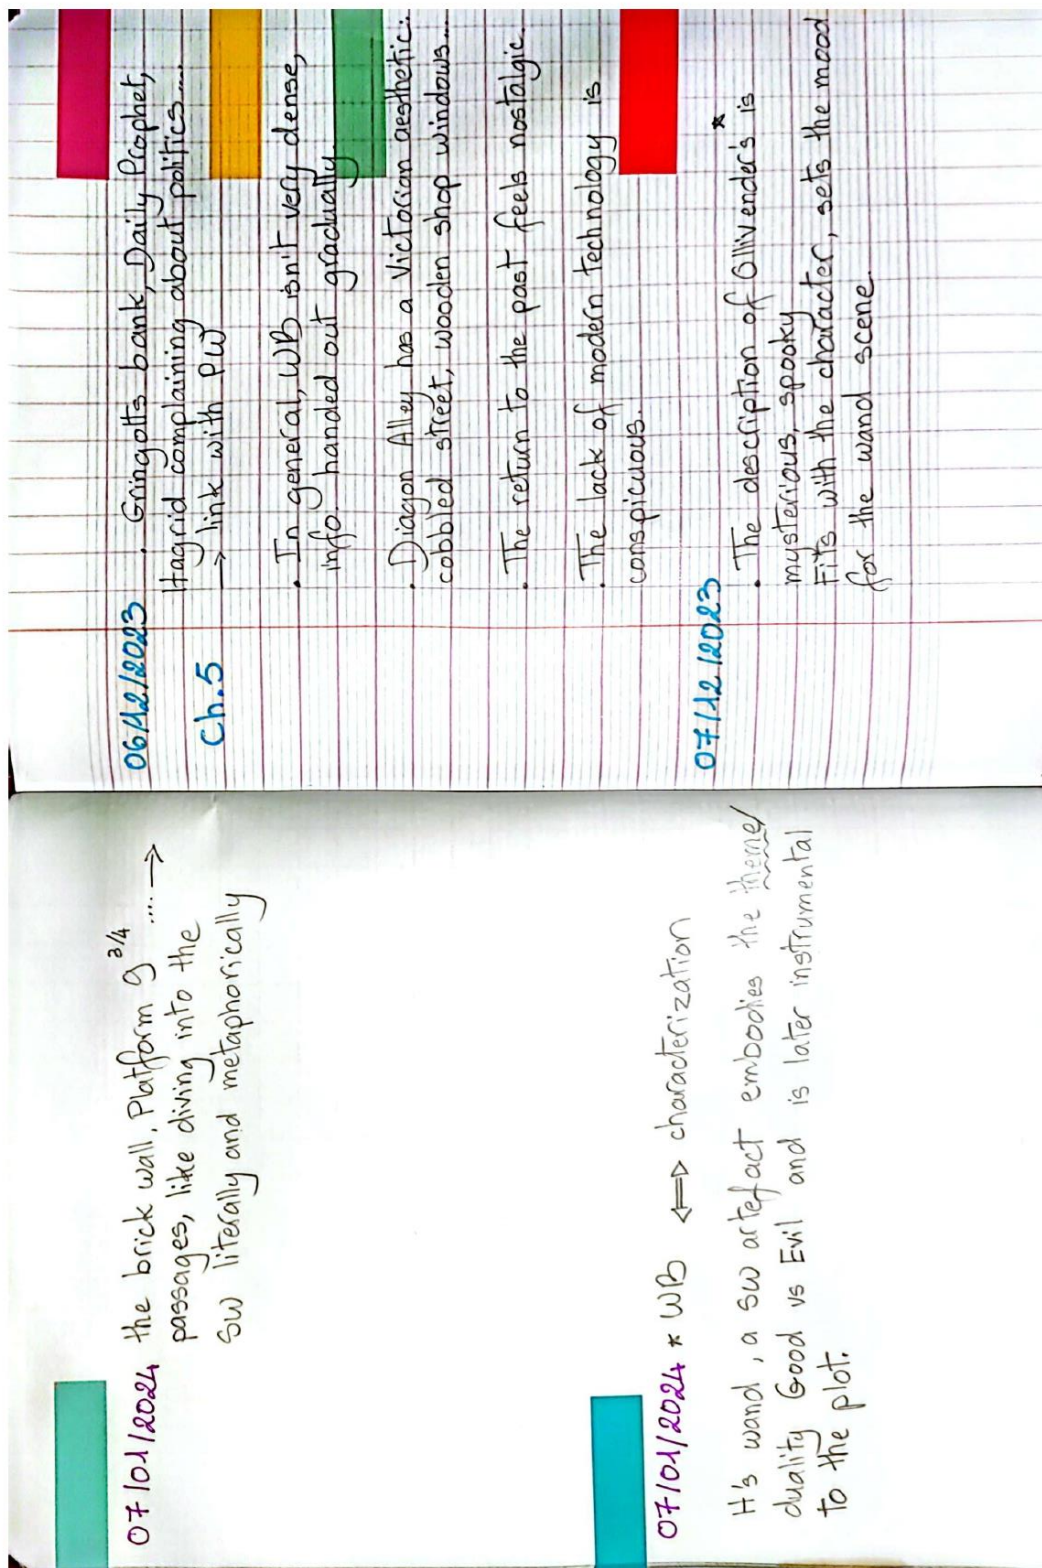 07/01/2024 the brick wall, Platform 9 3/4 .... →
passages, like diving into the
SW literally and metaphorically
07/01/2024 * WB ⇔ characterization
H's wand, a SW artefact embodies the theme/
duality Good vs Evil and is later instrumental
to the plot.
06/12/2023 . Gringotts bank, Daily Prophet,
Hagrid complaining about politics....
Ch.5 → link with PW
. In general, WB isn't very dense,
info handed out gradually
. Diagon Alley has a Victorian aesthetic:
cobbled street, wooden shop windows...
. The return to the past feels nostalgic
. The lack of modern technology is
conspicuous.
07/12/2023
. The description of Ollivender's is *
mysterious, spooky
Fits with the character, sets the mood
for the wand scene